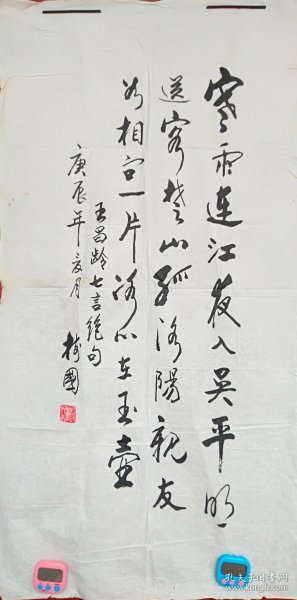 寒雨連江夜入吳平明
送客楚山孤洛陽親友
如相问一片冰心在玉壺
王昌龄七言绝句
庚辰年夏月
國
孔夫子旧书网